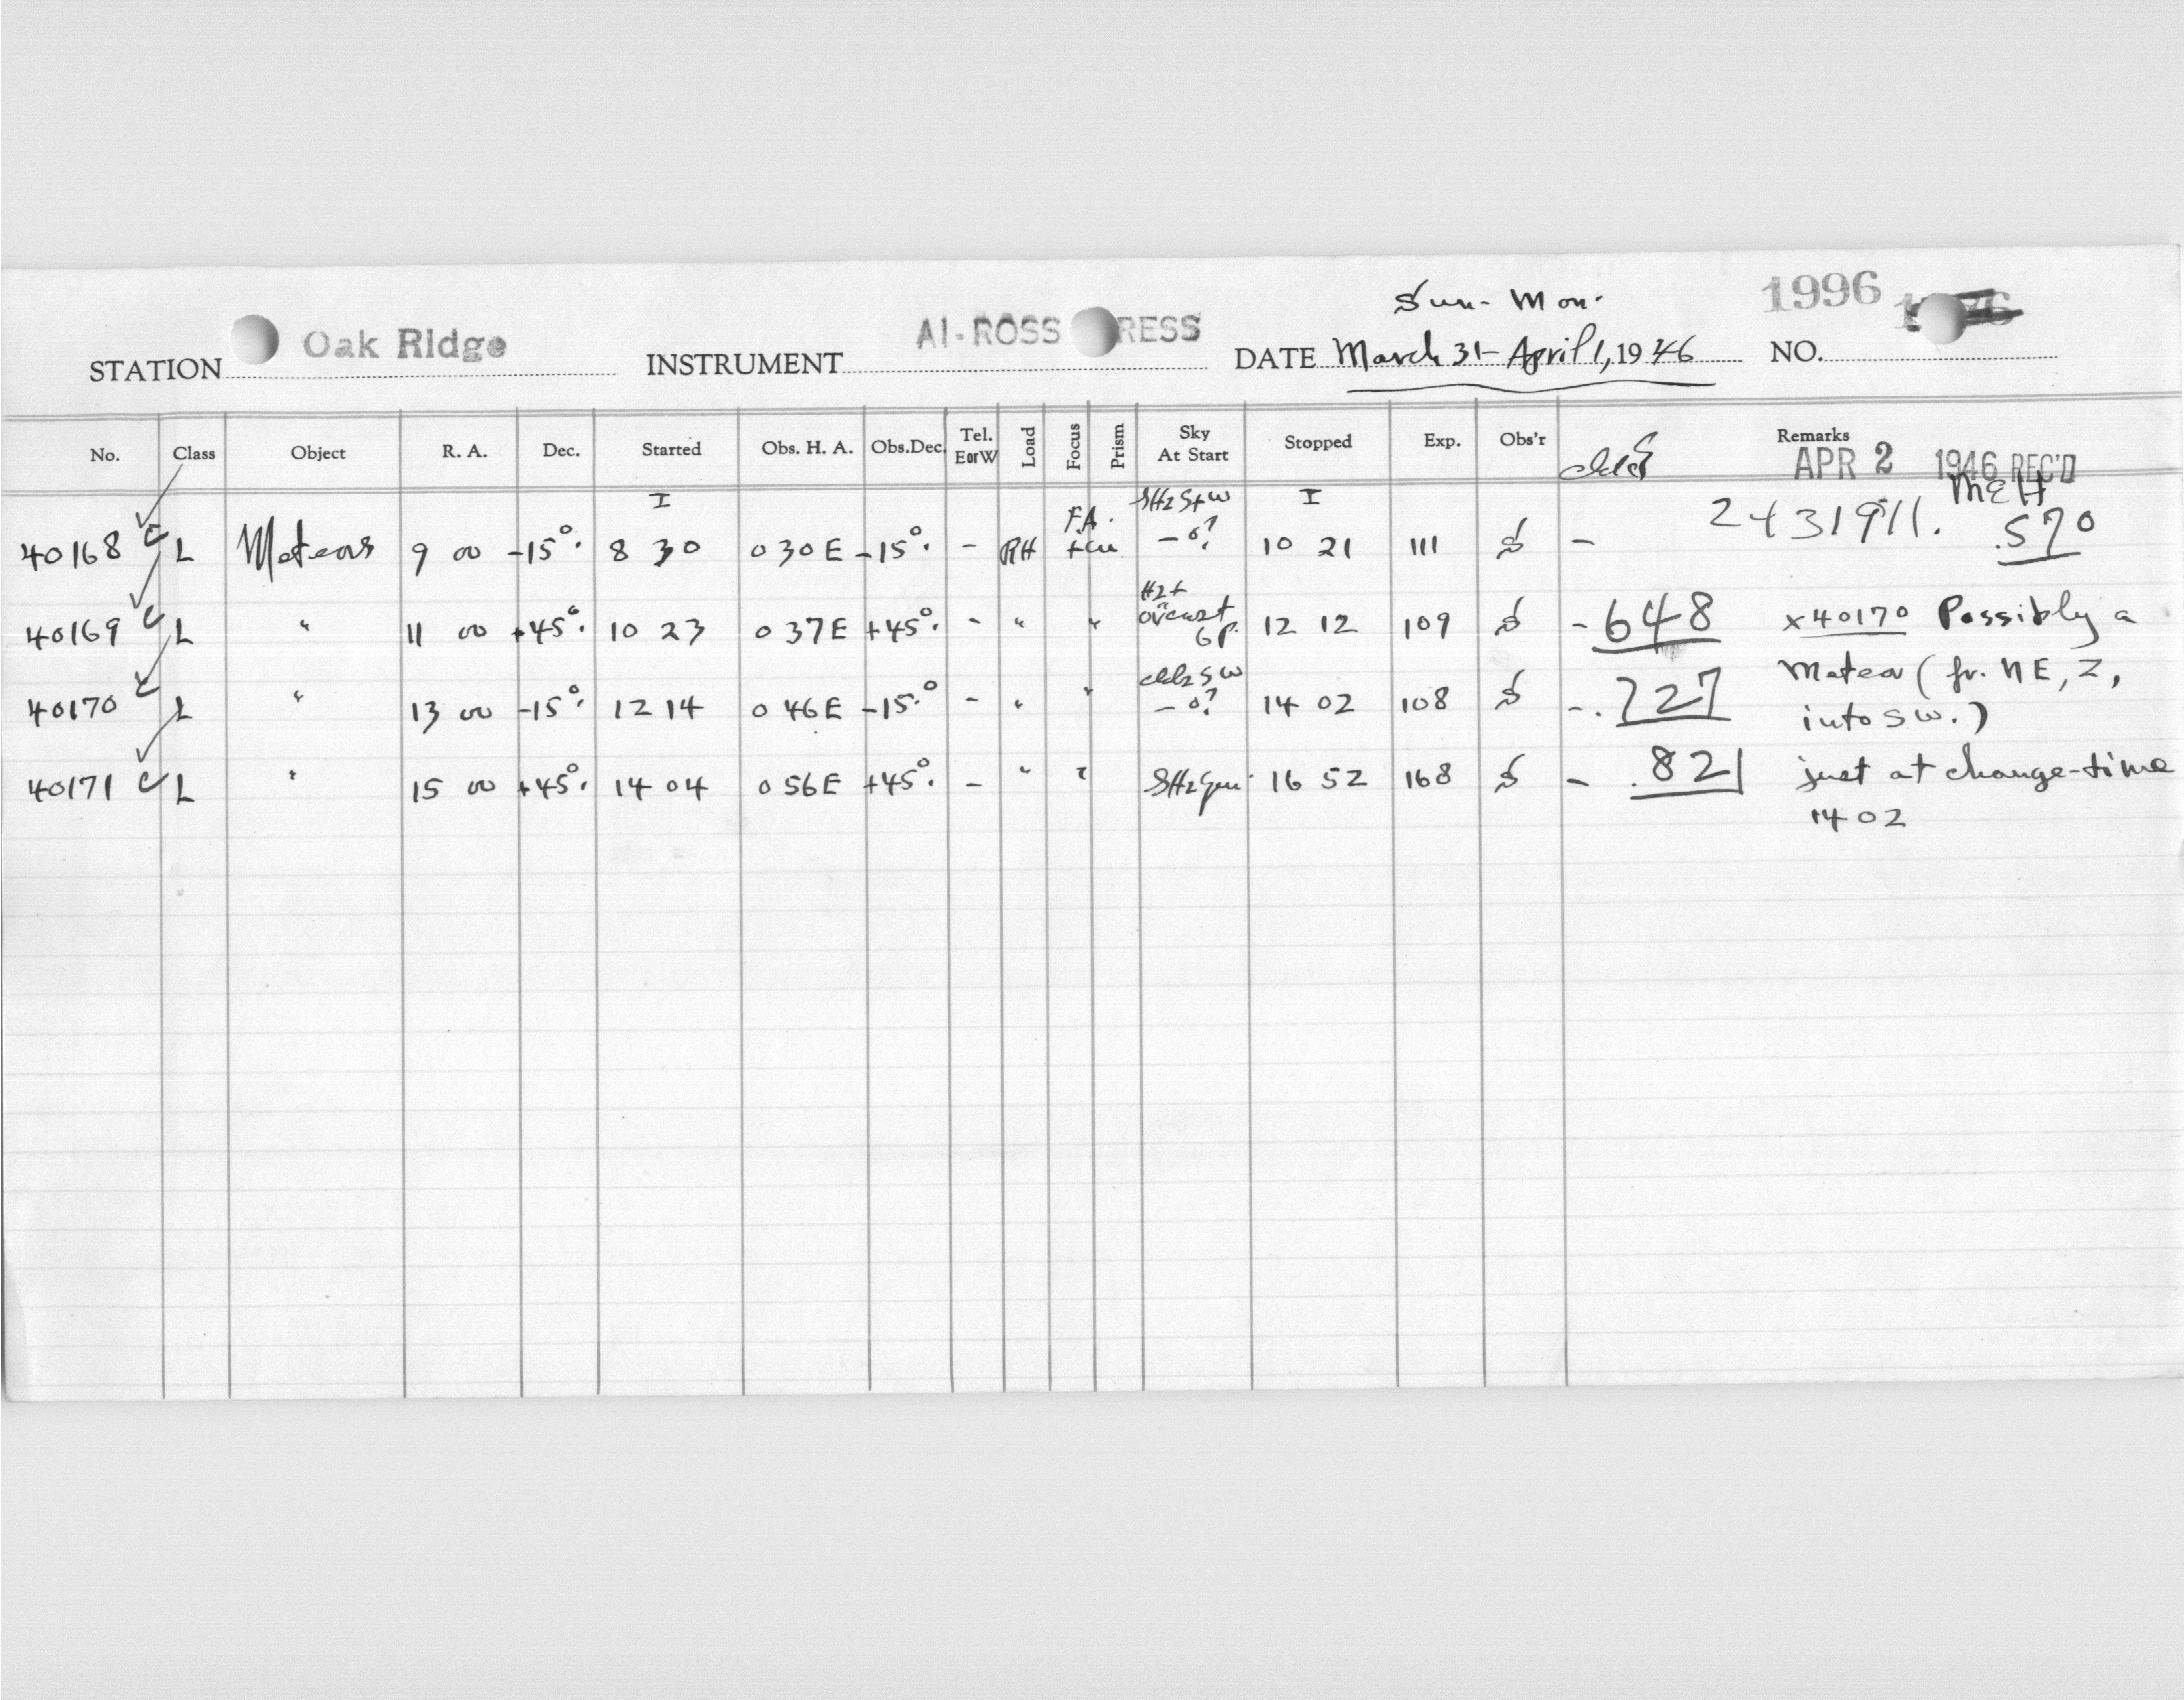 Sun - Mon. 1996
STATION Oak Ridge INSTRUMENT AI-ROSS RESS DATE March 31 - April 1, 1946 NO.
No. Class Object R. A. Dec. Started Obs. H. A. Obs.Dec. Tel. EorW Load Focus Prism Sky At Start Stopped Exp. Obs'r Remarks
APR 2 1946 REC'D
I I MEH
40168 C L Meteors 9 00 -15°. 8 30 0 30 E -15°. - RH F.A. -0? 10 21 111 - 2431911. .570
40169 C L " 11 00 +45°. 10 23 0 37 E +45°. - " " Hz+ overcast 6 p. 12 12 109 - 648 x 40170 Possibly a
40170 C L " 13 00 -15°. 12 14 0 46 E -15°. - " " SW -0? 14 02 108 -.727 Meteor (fr. NE, Z,
into SW.)
40171 C L " 15 00 +45°. 14 04 0 56 E +45°. - " " 16 52 168 - .821 just at change-time
1402